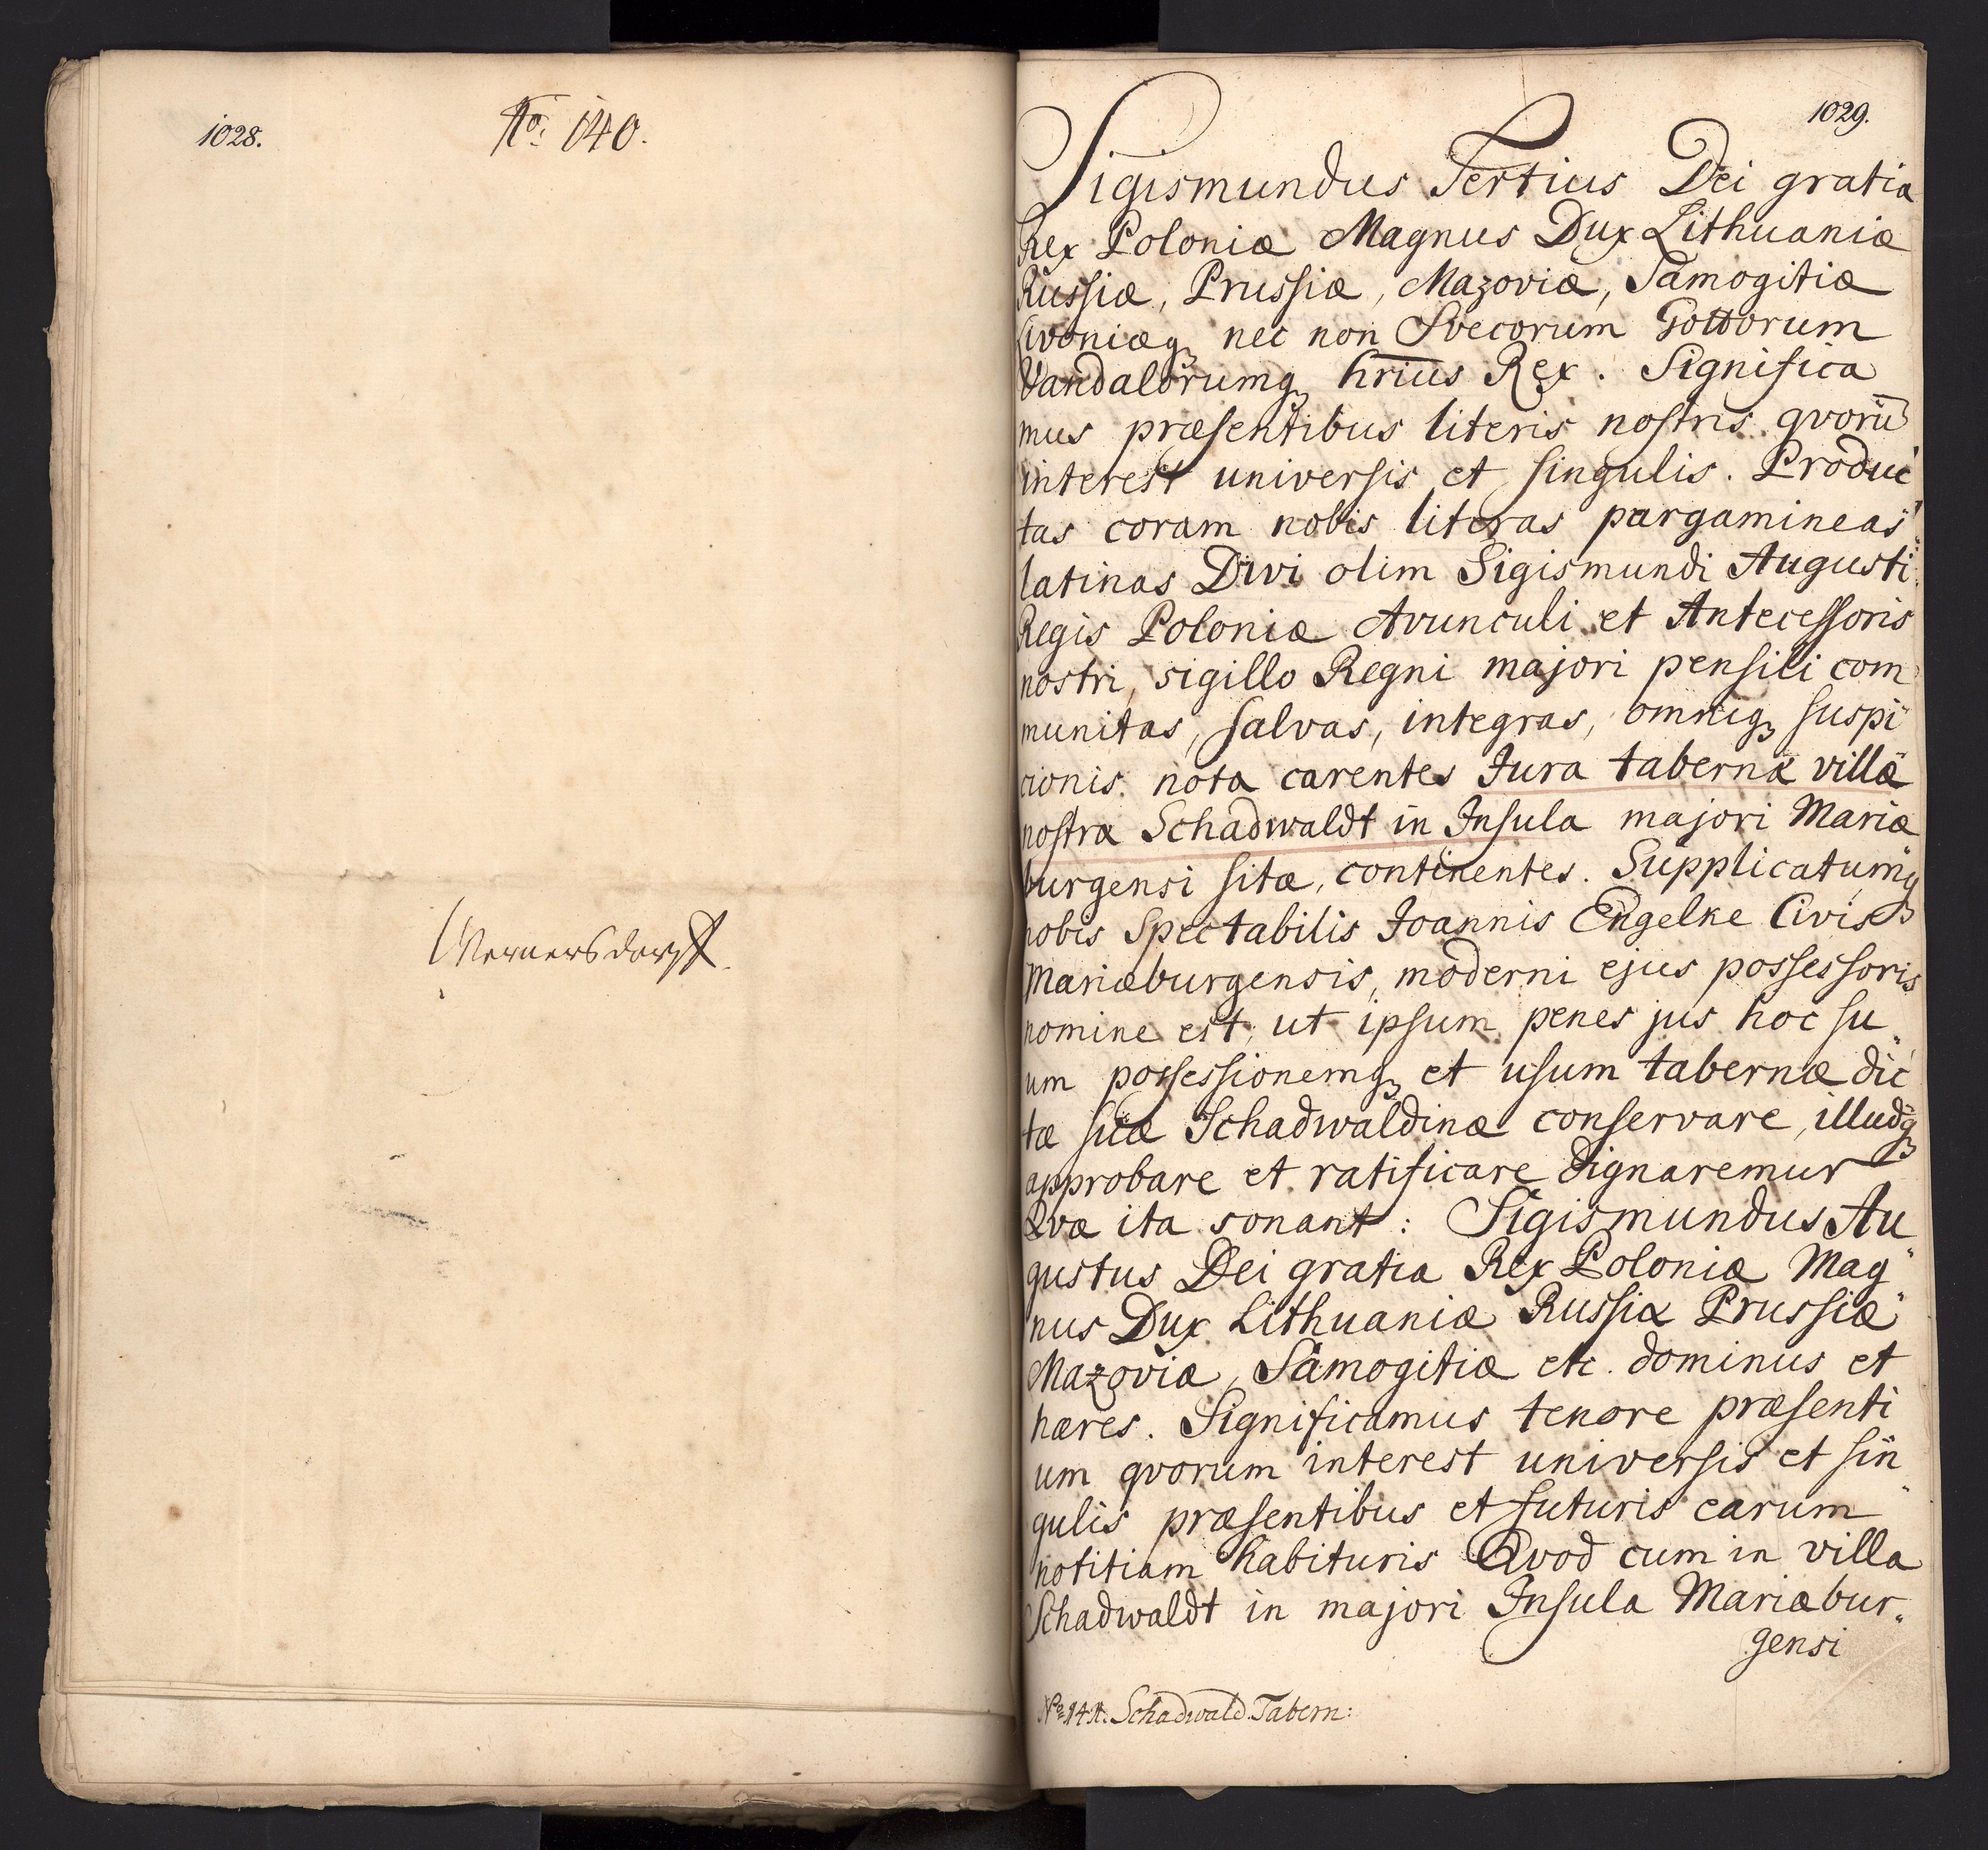 1028.
No: 140.
Wernersdorff.
1029.
Sigismundus Tertius Dei gratia
Rex Poloniæ Magnus Dux Lithuaniæ
Russiæ, Prussiæ, Mazoviæ, Samogitiæ
Livoniæq nec non Svecorum Gottorum
Vandalorumq hrius Rex. Significa
mus præsentibus literis nostris qvorū
interest universis et singulis. Produc
tas coram nobis literas pargamineas
latinas Divi olim Sigismundi Augusti
Regis Poloniæ Avunculi et Antecessoris
nostri, sigillo Regni majori pensili com
munitas, salvas, integras, omniq suspi
cionis nota carentes Jura tabernæ villæ
nostræ Schadwaldt in Insula majori Mariæ
burgensi sitæ, continentes. Supplicatumq
nobis Spectabilis Joannis Engelke Civis
Mariæburgensis, moderni ejus possessoris
nomine est, ut ipsum penes jus hoc su„
um possessionemq et usum tabernæ dic
tæ suæ Schadwaldinæ conservare, illudq
approbare et ratificare dignaremur
Qvæ ita sonant: Sigismundus Au„
gustus Dei gratia Rex Poloniæ Mag„
nus Dux Lithuaniæ Russiæ Prussiæ
Mazoviæ, Samogitiæ etc. dominus et
hæres. Significamus tenore præsenti
um qvorum interest universis et sin„
gulis præsentibus et futuris earum
notitiam habituris Qvod cum in villa
Schadwaldt in majori Insula Mariæbur„
gensi
No 141. Schadwald. Tabern: